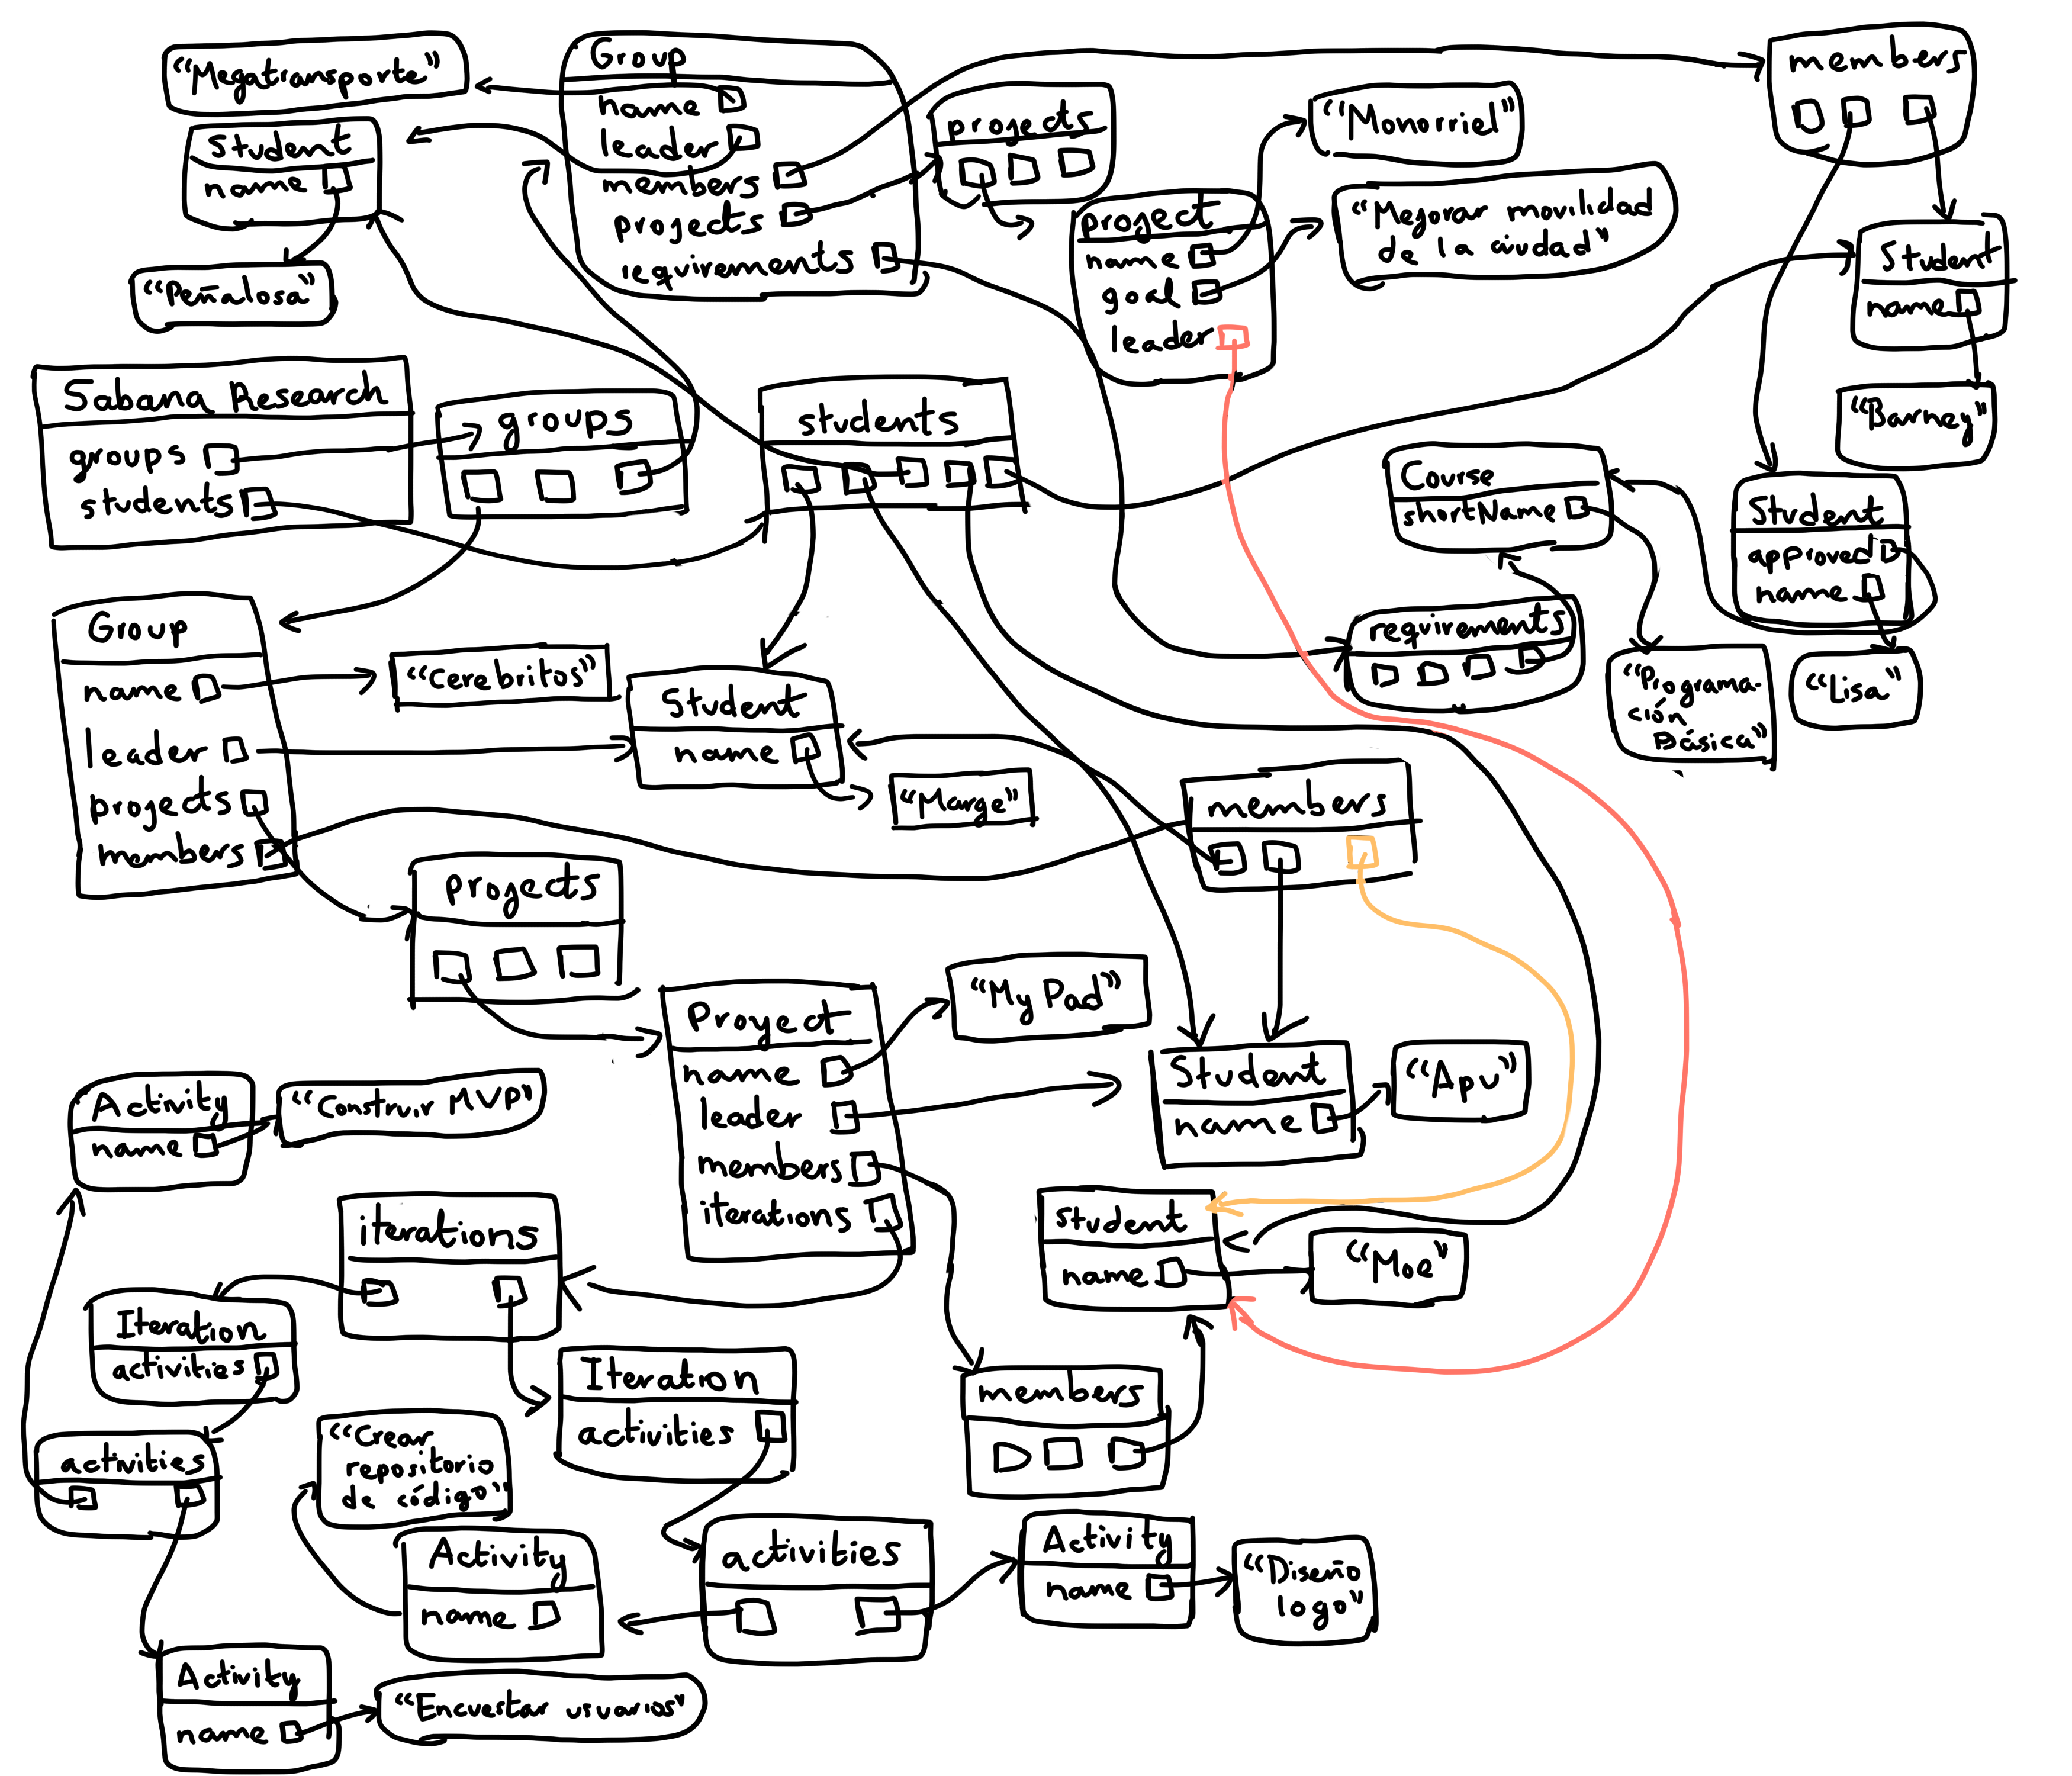 “Megatransporte”
Group
name
leader
members
projects
requirements
projects
“Monorriel”
members
Student
name
“Peñalosa”
project
name
goal
leader
“Mejorar movilidad
de la ciudad”
Student
name
“Barney”
Sabana Research
groups
students
groups
students
Course
shortName
Student
approved
name
requirements
“Programa-
ción
Básica”
“Lisa”
Group
name
leader
projects
members
“Cerebritos”
Student
name
“Marge”
members
projects
Proyect
name
leader
members
iterations
“My Pad”
Student
name
“Apu”
Activity
name
“Construir MVP”
iterations
student
name
“Moe”
Iteration
activities
Iteration
activities
members
activities
“Crear
repositorio
de código”
Activity
name
activities
Activity
name
“Diseño
logo”
Activity
name
“Encuestar usuarios”